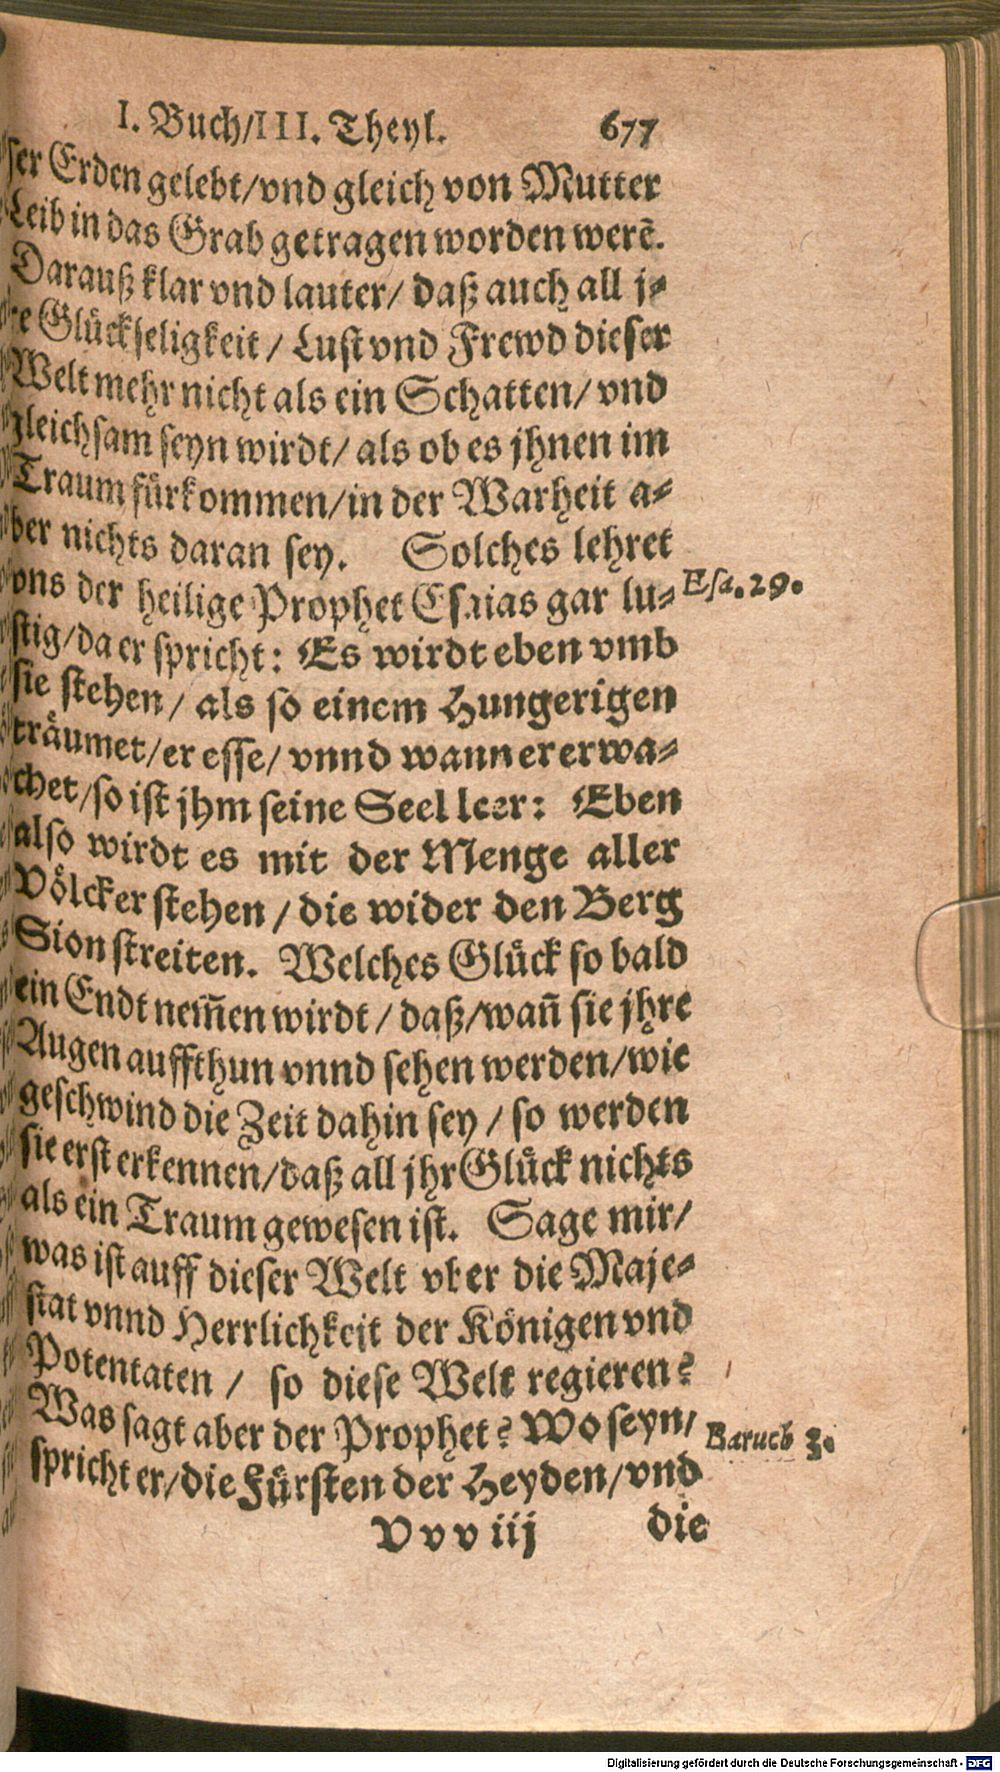 I. Buch/III. Theyl. 677
ser Erden gelebt/vnd gleich von Mutter
Leib in das Grab getragen worden werē.
Darauß klar vnd lauter/ daß auch all j⸗
re Glückseligkeit / Lust vnd Frewd dieser
Welt mehr nicht als ein Schatten/ vnd
gleichsam seyn wirdt/ als ob es jhnen im
Traum fürkommen/in der Warheit a⸗
ber nichts daran sey. Solches lehret
vns der heilige Prophet Esaias gar lu⸗ Esa. 29.
stig/da er spricht: Es wirdt eben vmb
sie stehen / als so einem Hungerigen
träumet/er esse/ vnnd wann er erwa⸗
chet/so ist jhm seine Seel leer: Eben
also wirdt es mit der Menge aller
Völcker stehen / die wider den Berg
Sion streiten. Welches Glück so bald
ein Endt nem̄en wirdt / daß/wan̄ sie jhre
Augen auffthun vnnd sehen werden/wie
geschwind die Zeit dahin sey / so werden
sie erst erkennen/daß all jhr Glück nichts
als ein Traum gewesen ist. Sage mir/
was ist auff dieser Welt vber die Maje⸗
stat vnnd Herrlichkeit der Königen vnd
Potentaten / so diese Welt regieren?
Was sagt aber der Prophet? Wo seyn/ Baruch 3.
spricht er/die Fürsten der Heyden/vnd
V v v iij die
Digitalisierung gefördert durch die Deutsche Forschungsgemeinschaft - DFG